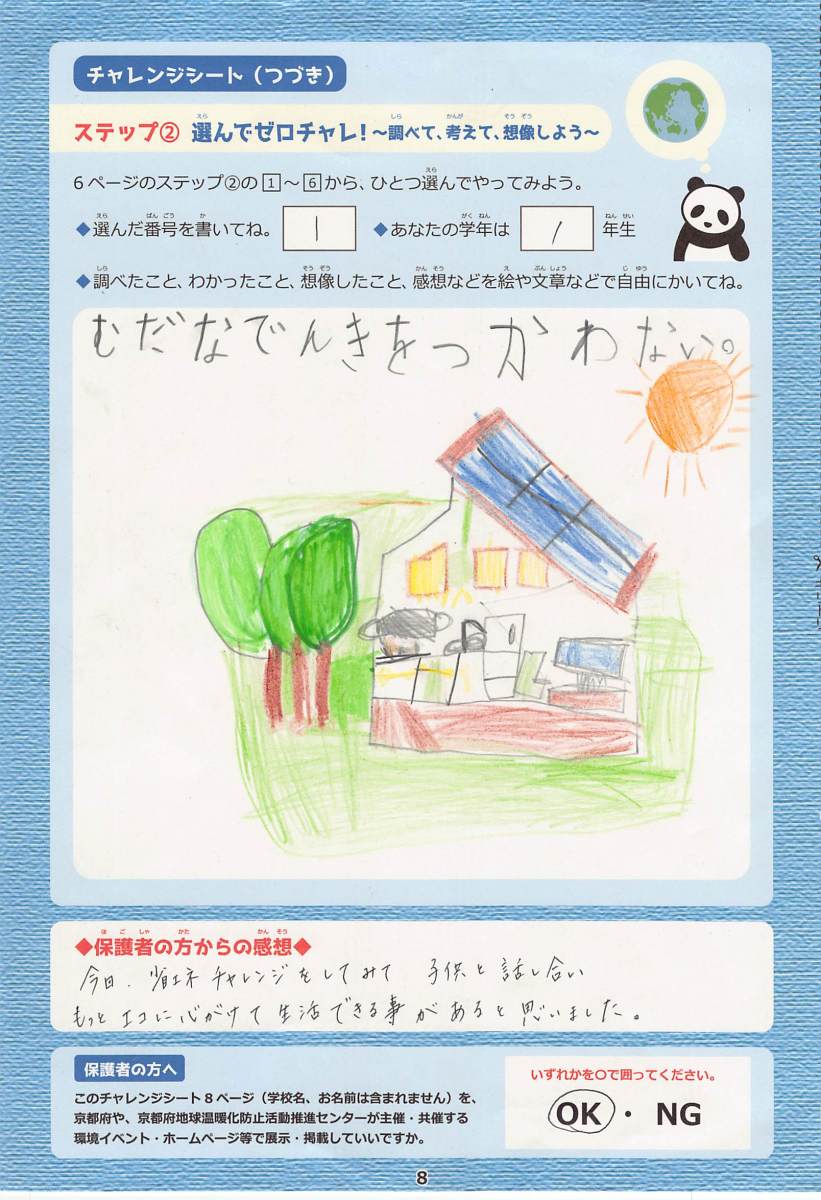 チャレンジシート（つづき）
ステップ② 選んでゼロチャレ！～調べて、考えて、想像しよう～
6ページのステップ②の1～6から、ひとつ選んでやってみよう。
◆選んだ番号を書いてね。 1 ◆あなたの学年は 1 年生
◆調べたこと、わかったこと、想像したこと、感想などを絵や文章などで自由にかいてね。
むだなでんきをつかわない。
◆保護者の方からの感想◆
今日、省エネチャレンジをしてみて 子供と話し合い
もっとエコに心がけて生活できる事があると思いました。
保護者の方へ
このチャレンジシート8ページ（学校名、お名前は含まれません）を、
京都府や、京都府地球温暖化防止活動推進センターが主催・共催する
環境イベント・ホームページ等で展示・掲載していいですか。
いずれかを○で囲ってください。
OK・NG
8